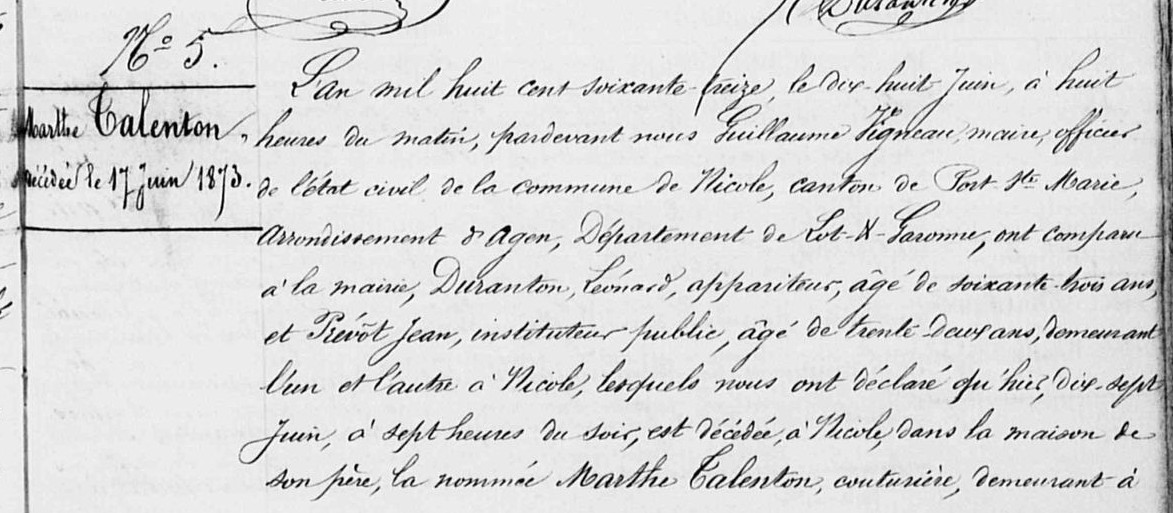 N° 5.
Marthe Talenton,
décédée le 17 Juin 1873.
L'an mil huit cent soixante-treize le dix huit Juin, à huit
heures du matin, pardevant nous Guillaume Vigneau, maire, officier
de l'état civil de la commune de Nicole, canton de Port-Ste-Marie,
Arrondissement d'Agen, Département de Lot-&-Garonne, ont comparu
à la mairie, Duranton, Léonard, appariteur, âgé de soixante-trois ans,
et Prévôt Jean, instituteur public, âgé de trente-Deux ans, demeurant
l'un et l'autre à Nicole, lesquels nous ont déclaré qu'hier, dix-sept
Juin, à sept heures du soir, est décédée, à Nicole, dans la maison de
son père, la nommée Marthe Talenton, couturière, demeurant à